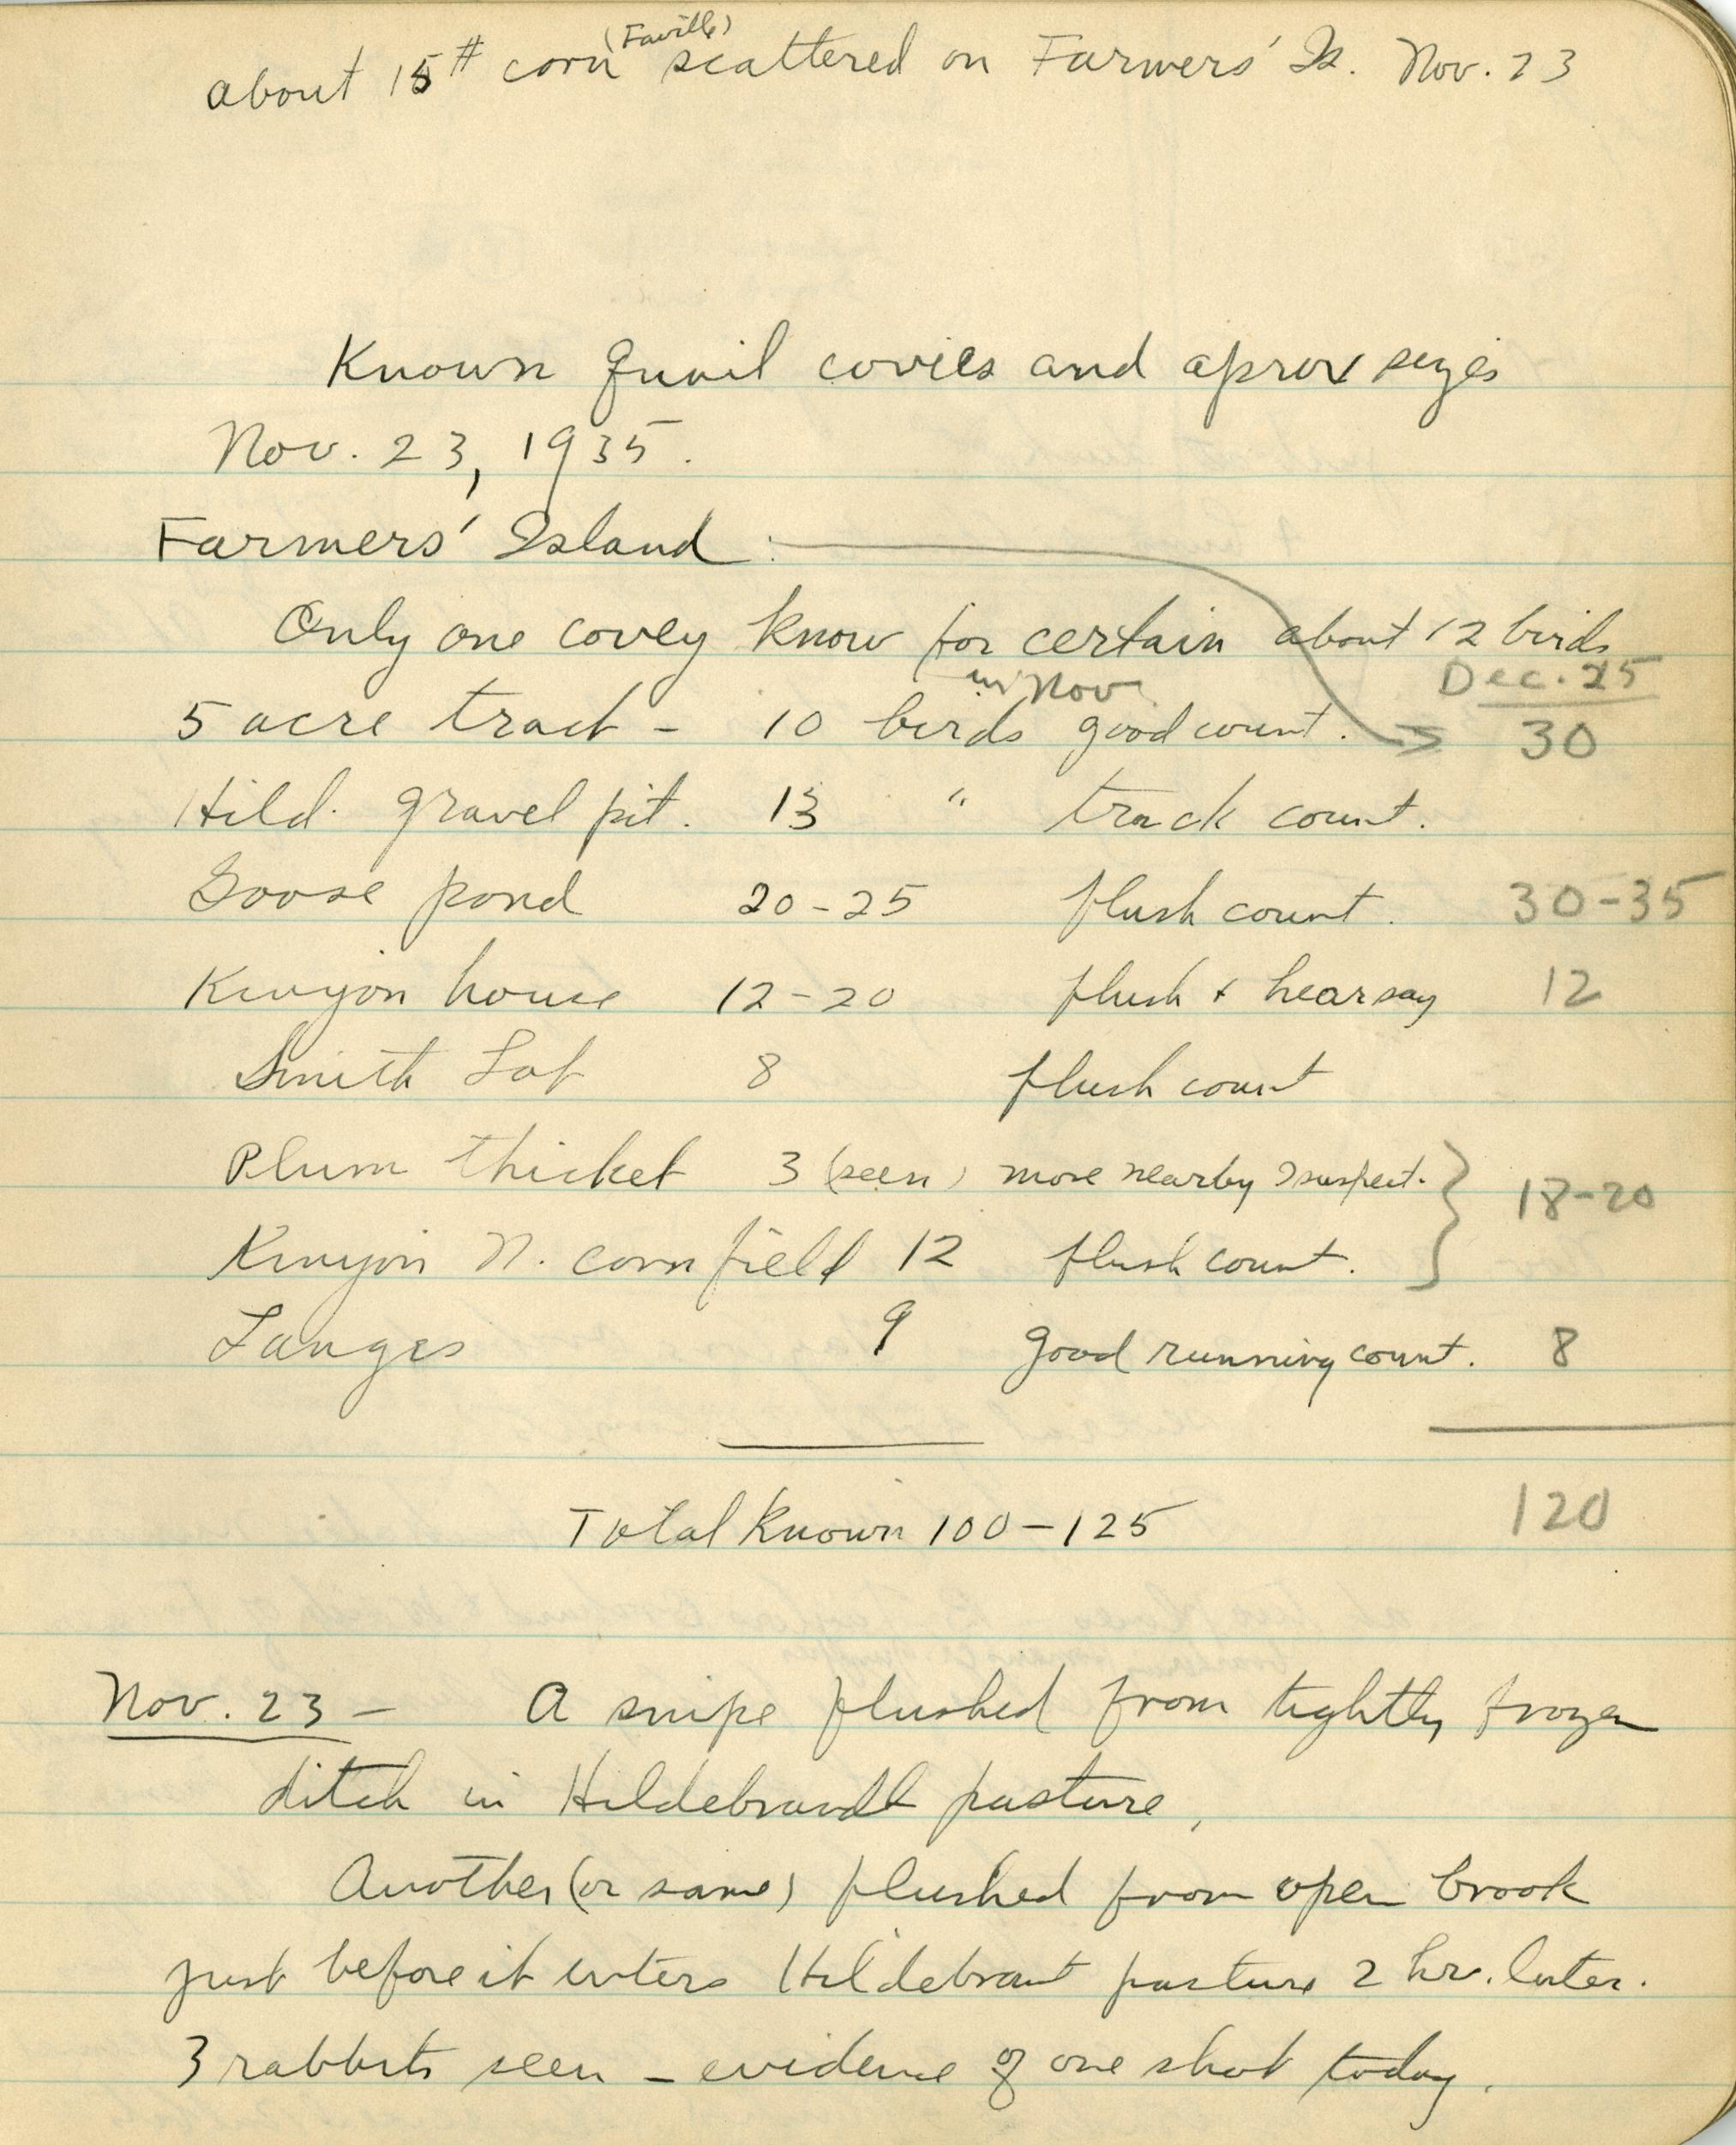 (Faville)
about 15# corn scattered on Farmers' Is. Nov. 23
Known Quail covies and aprox sizes
Nov. 23, 1935.
Farmers' Island :
Only one covey know for certain about 12 birds
in Nov Dec. 25
5 acre tract - 10 birds good count. → 30
Hild. gravel pit. 13 " track count.
Goose pond 20-25 flush count. 30-35
Kinyon house 12-20 flush + hearsay 12
Smith Lot 8 flush count
Plum thicket 3 (seen) more nearby I suspect. } 18-20
Kinyon N. cornfield 12 flush count.
Langes 9 good running count. 8
Total Known 100-125 120
Nov. 23 - A snipe flushed from tightly frozen
ditch in Hildebrandt pasture,
Another (or same) flushed from open brook
just before it enters Hildebrant pasture 2 hr. later.
3 rabbits seen - evidence of one shot today.